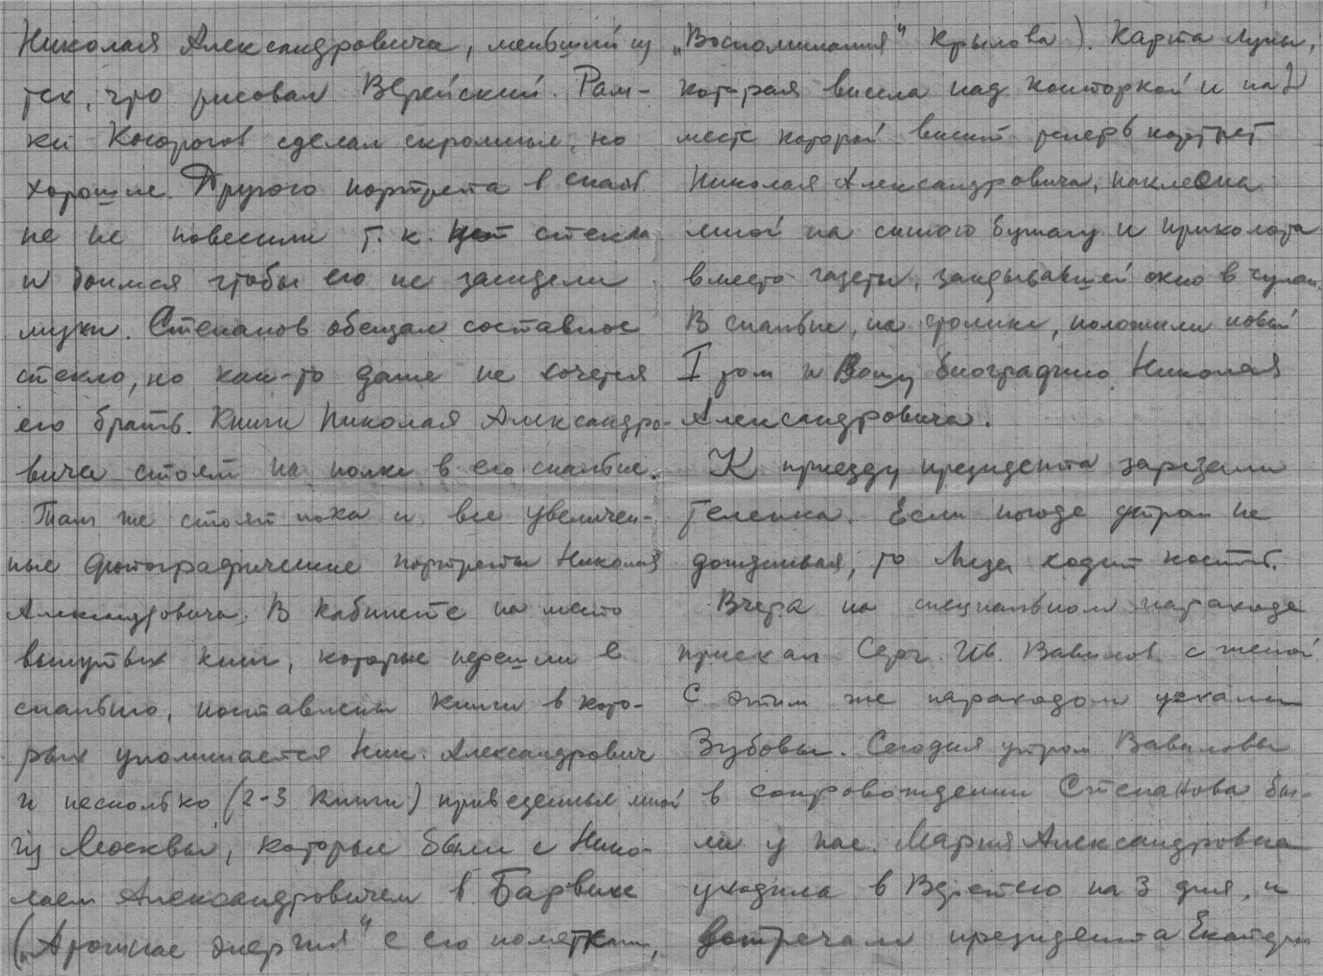 Николая Александровича, меньший из
тех, что рисовал Верейский. Рам-
ки Косорогов сделал скромные, но
хорошие. Другого портрета в спаль
не не повесили т.к. нет стекла
и боимся чтобы его не засидели
мухи. Степанов обещал составное
стекло, но как-то даже не хочется
его брать. Книги Николая Александро-
вича стоят на полке в его спальне.
Там же стоят пока и все увеличен-
ные фотографические портреты Николая
Александровича. В кабинете на место
вынутых книг, которые перешли в
спальню, поставлены книги в кото-
рых упоминается Ник. Александрович
и несколько (2-3 книги) привезенные мной
из Москвы, которые были с Нико-
лаем Александровичем в Барвихе
("Атомная энергия" с его пометками,
"Воспоминания" Крылова). Карта Луны,
которая висела над конторкой и на
месте которой висит теперь портрет
Николая Александровича, наклеена
мной на синюю бумагу и приколота
вместо газеты, закрывавшей окно в чулан.
В спальне, на столике, положили новый
I том и Вашу биографию Николая
Александровича.
К приезду президента зарезали
теленка. Если погода утром не
дождливая, то Лиза ходит косить.
Вчера на специальном пароходе
приехал Серг. Ив. Вавилов с женой
С этим же пароходом уехали
Зубовы. Сегодня утром Вавиловы
в сопровождении Степанова бы-
ли у нас. Мария Александровна
уходила в на 3 дня, и
встречали президента